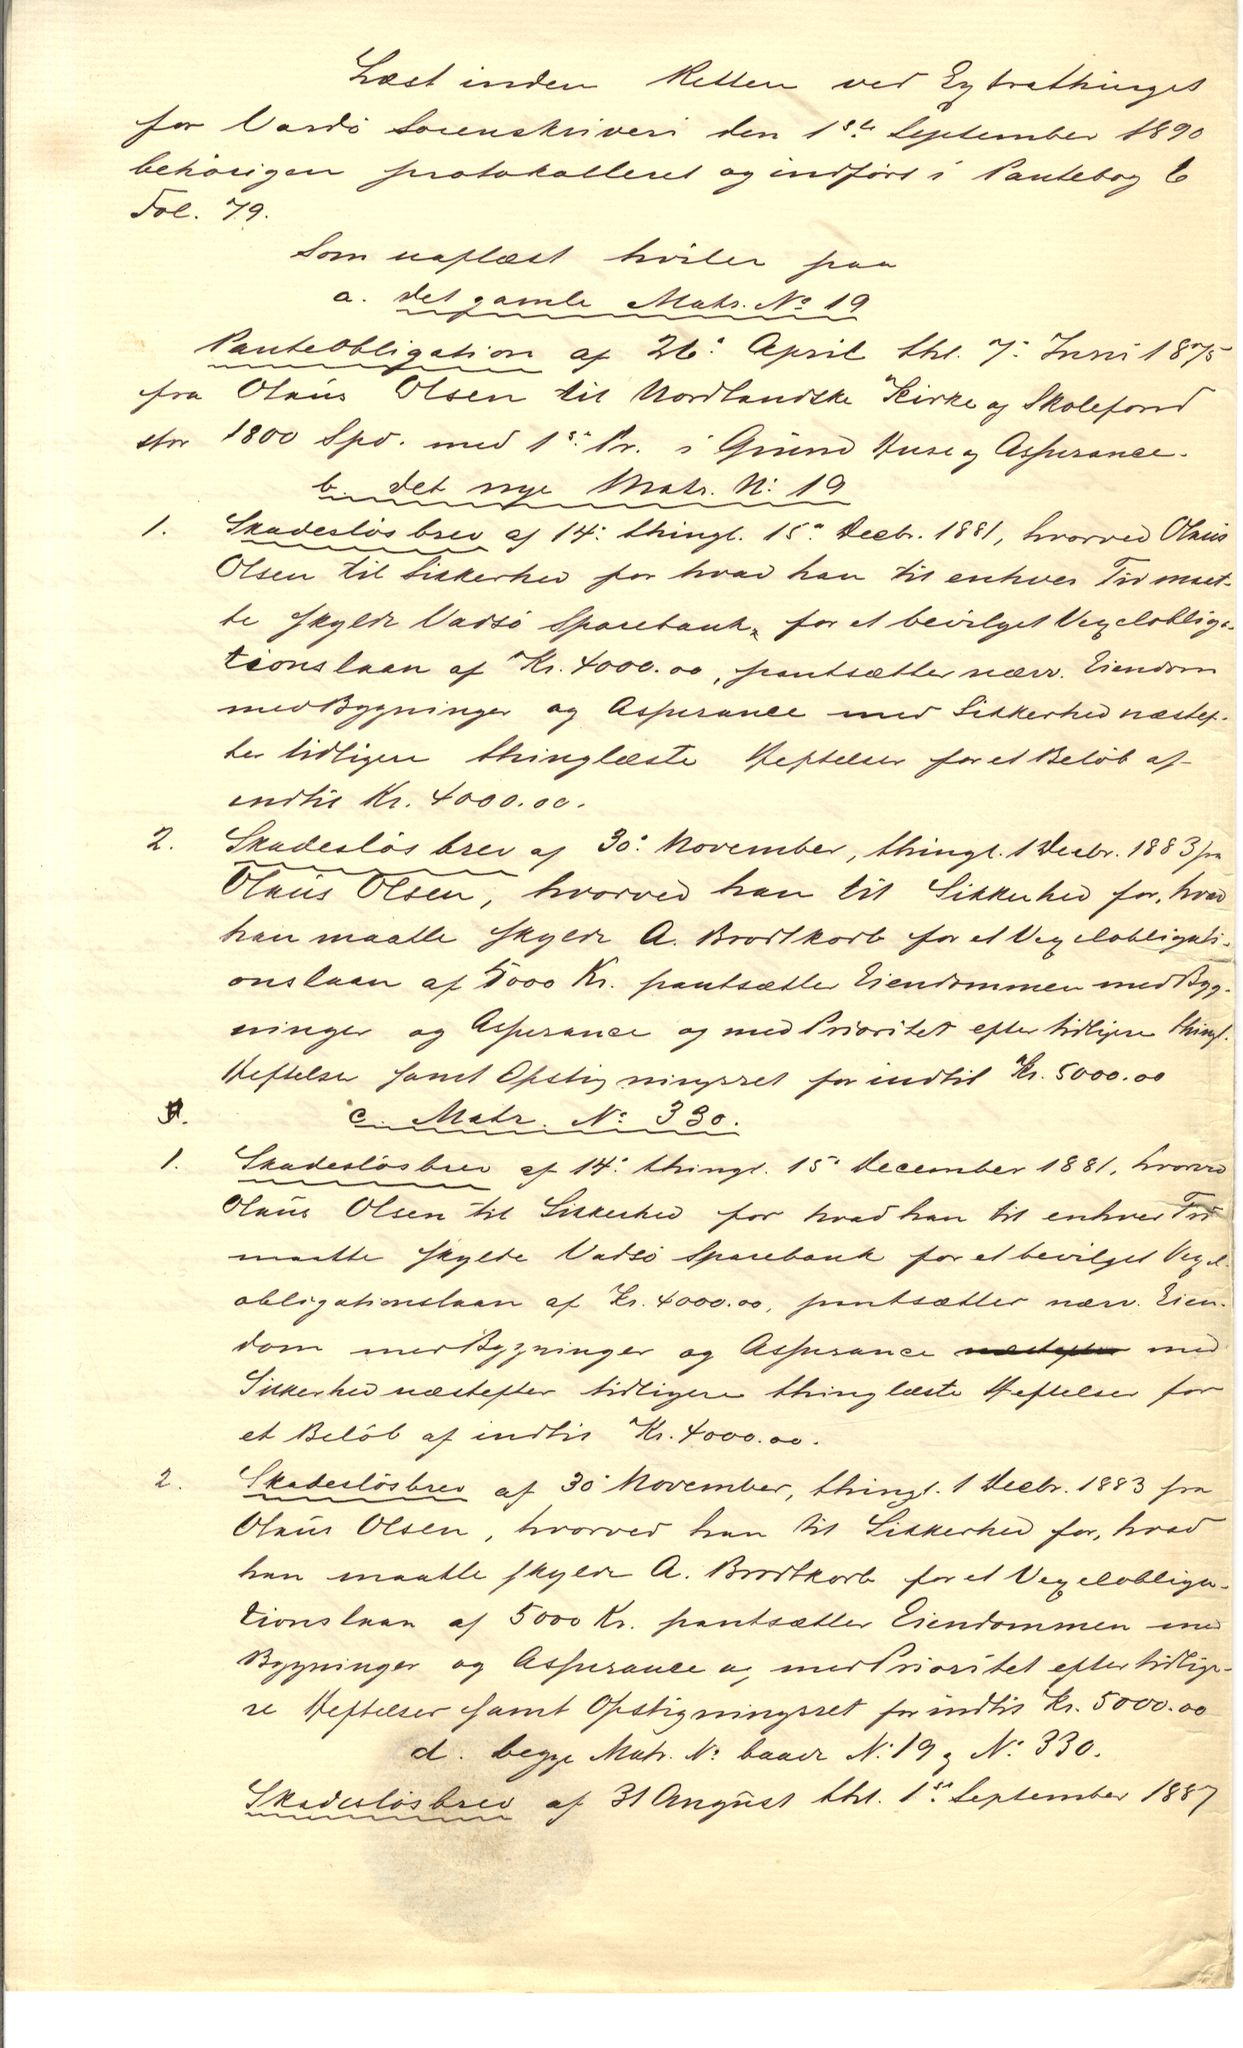 Læst inden Retten ved Extrathinget
for Vardö Sorenskriveri den 1ste September 1890
behörigen protokolleret og indført i Pantebog 6
Fol. 79.
Som uaflæst hviler paa
a. det gamle Matr. No 19
Panteobligation af 26. April thl. 7. Juni 1875
fra Olaus Olsen til Nordlandske Kirke og Skolefond
stor 1800 Spd. med 1ste Pr. i Grund Huse og Assurance.
b. det nye Matr. N: 19
1. Skadeslösbrev af 14. thingl. 15. Decbr. 1881, hvorved Olaus
Olsen til Sikkerhed for hvad han til enhver Tid maat-
te skylde Vadsö Sparebank, for et bevilget Vexelobliga-
tionslaan af Kr. 4000.00, pantsætter nærv. Eiendom
med Bygninger og Assurance med Sikkerhed næstef-
ter tidligere thinglæste Heftelser for et Beløb af
indtil Kr. 4000.00.
2. Skadeslös brev af 30. November, thingl. 1 Decbr. 1883 fra
Olaus Olsen, hvorved han til Sikkerhed for, hvad
han maatte skylde A. Brodtkorb for et Vexelobligati-
onslaan af 5000 Kr. pantsætter Eiendommen med Byg-
ninger og Assurance og med Prioritet efter tidligere thingl.
Heftelser samt Opstigningsret for indtil Kr. 5000.00
c. Matr. No 330.
1. Skadeslösbrev af 14. thingl. 15. December 1881, hvorved
Olaus Olsen til Sikkerhed for hvad han til enhver Tid
maatte skylde Vadsö Sparebank for et bevilget Vexel-
obligationslaan af Kr. 4000.00, pantsætter nærv. Eien-
dom med Bygninger og Assurance næstefter med
Sikkerhed næstefter tidligere thinglæste Heftelser for
et Belöb af indtil Kr. 4000.00.
2. Skadeslösbrev af 30 November, thingl. 1 Decbr. 1883 fra
Olaus Olsen, hvorved han til Sikkerhed for, hvad
han maatte skylde A. Brodtkorb for et Vexelobliga-
tionslaan af 5000 Kr. pantsætter Eiendommen med
Bygninger og Assurance og med Prioritet efter tidlige-
re Heftelser samt Opstigningsret for indtil Kr. 5000.00
d. begge Matr. No baade N: 19 og N: 330.
Skadeslösbrev af 31 August thl. 1ste September 1887